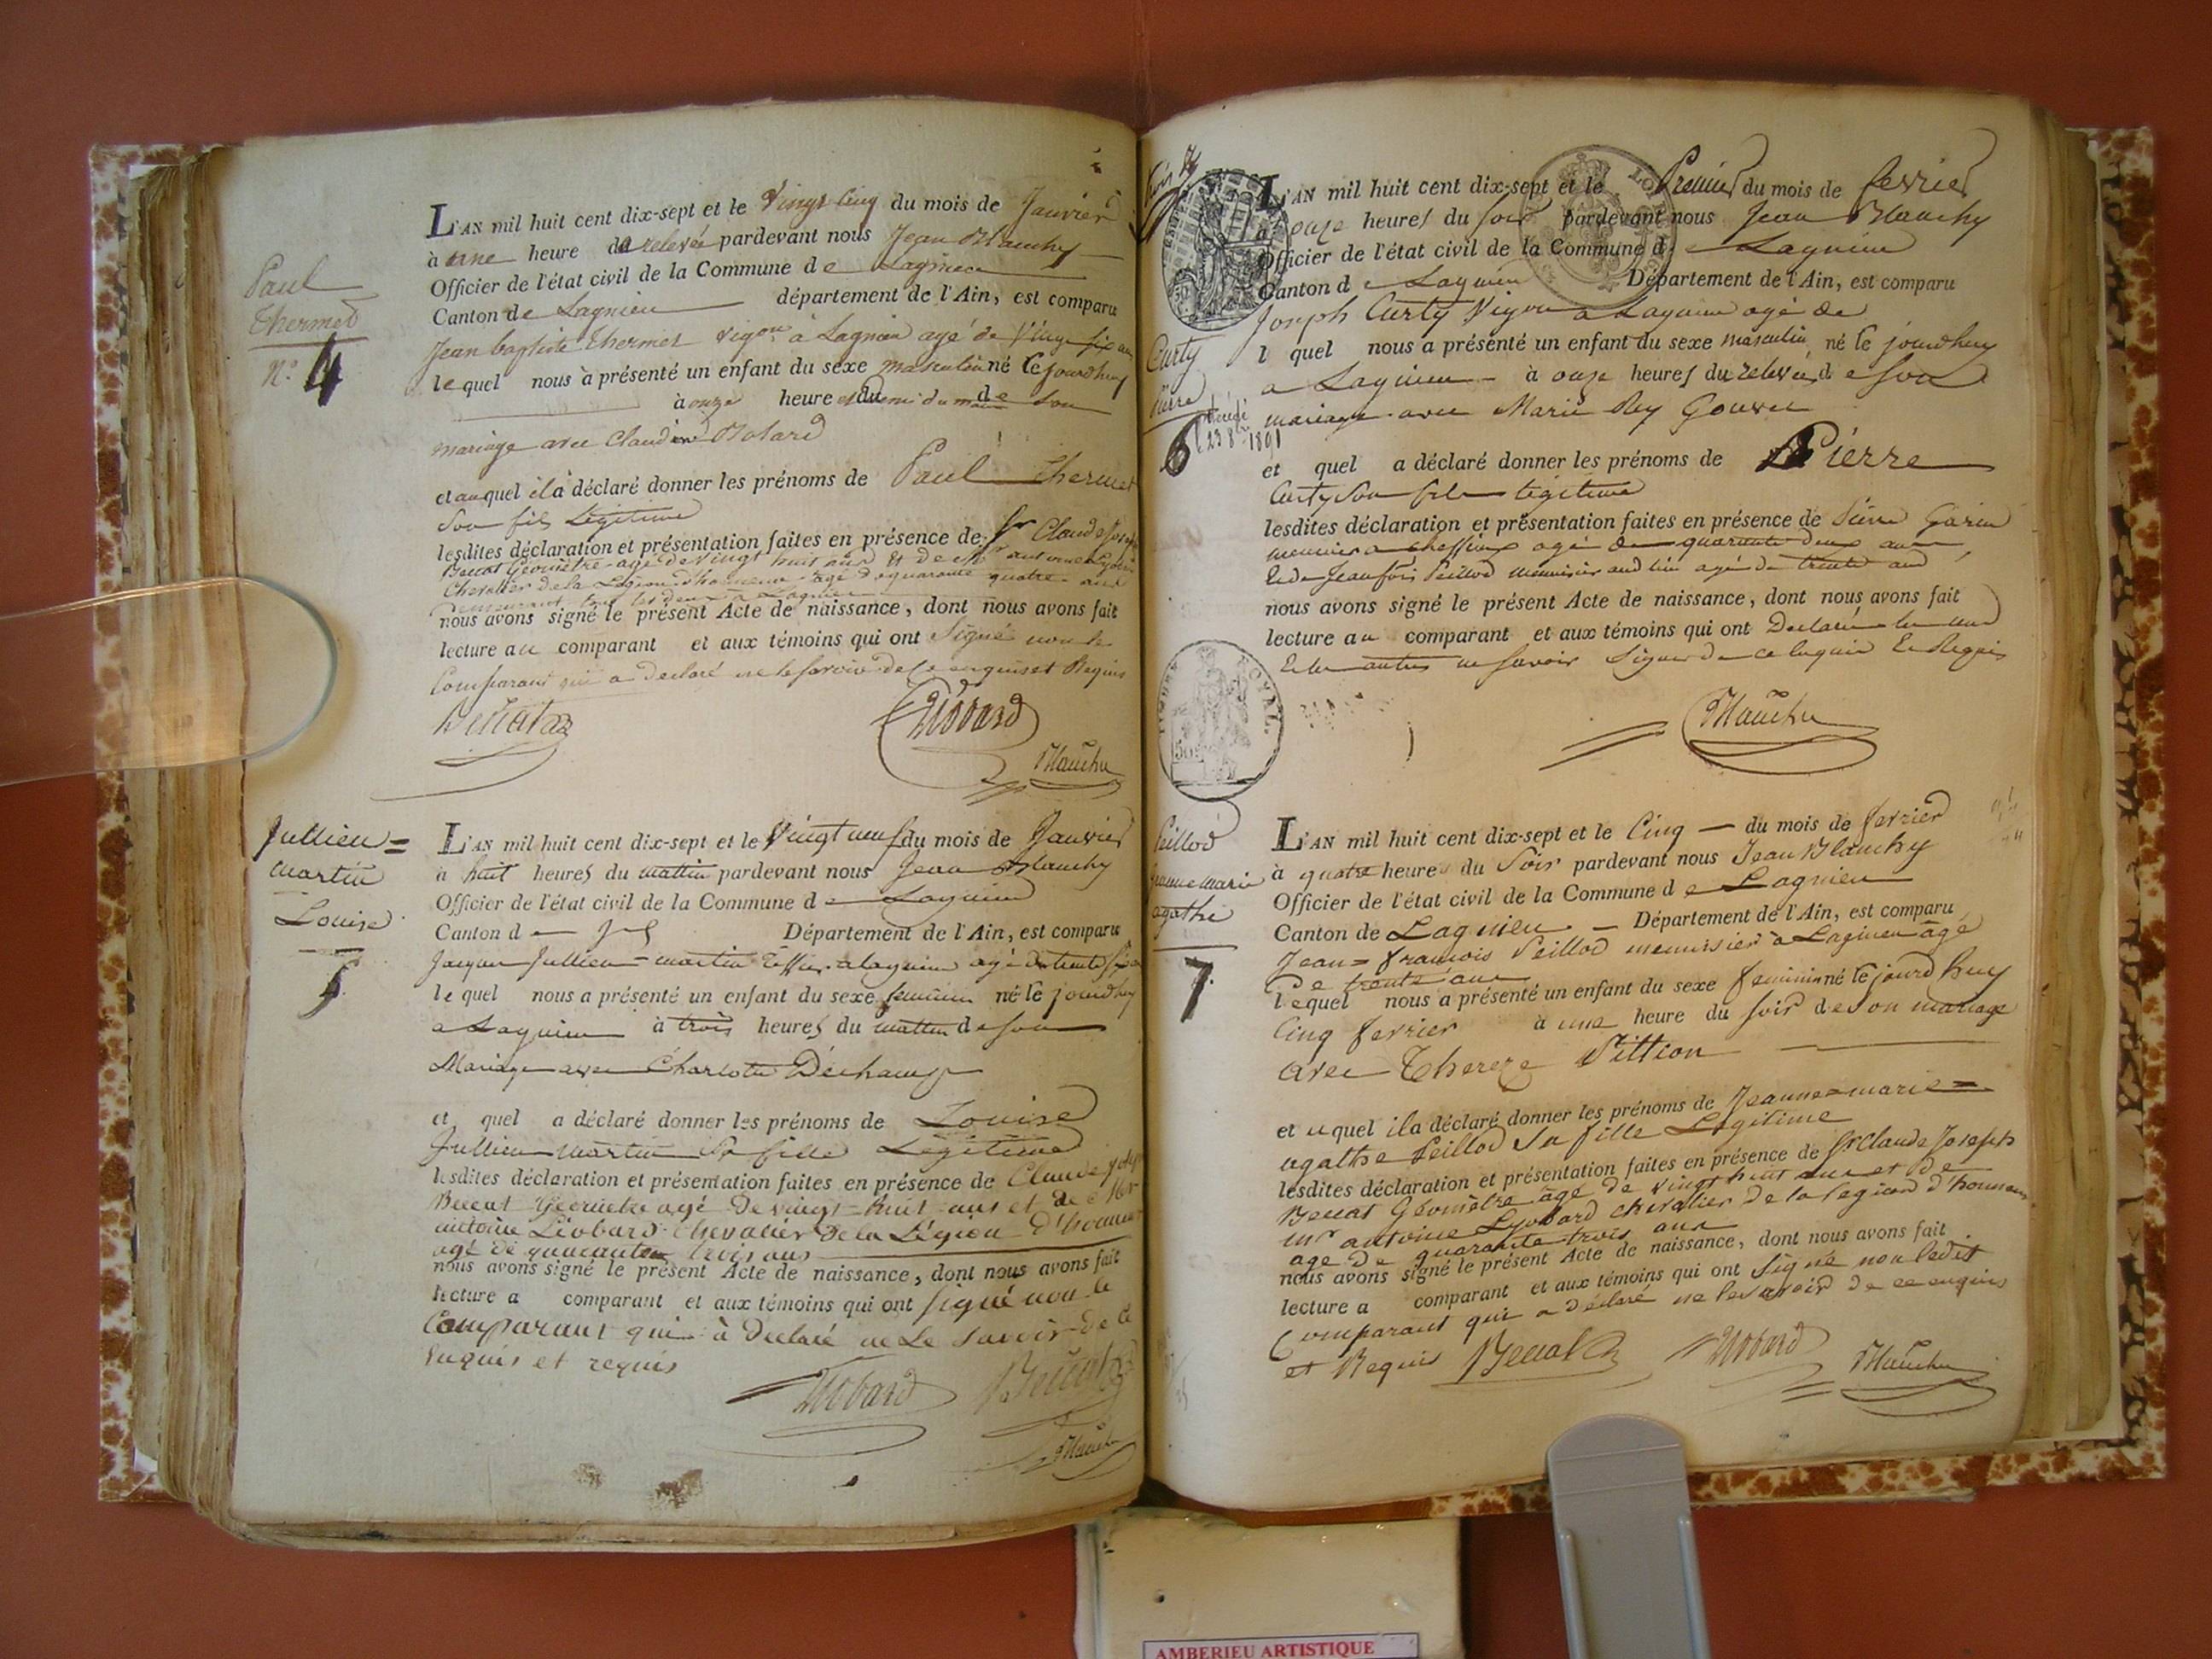 Paul
Thermet
N.º 4
L'AN mil huit cent dix-sept et le Vingt Cinq du mois de Janvier
à une heure de relevée pardevant nous Jean Blanchy
Officier de l'état civil de la Commune de Lagnieu
Canton de Lagnieu département de l'Ain, est comparu
Jean baptiste Thermet vig.on à Lagnieu agé de Vingt six ans
lequel nous à présenté un enfant du sexe masculin né le jourdhuy
à onze heure et demi du matin de son
mariage avec Claudine Bolard
et auquel il à déclaré donner les prénoms de Paul Thermet
Son fils Légitime
lesdites déclaration et présentation faites en présence de Sr Claude Joseph
Beccat Géomètre agé de Vingt huit ans et de Mr antoine Lyobard
Chevalier de la Légion d'honneur agé de quarante quatre ans
demeurant tous les deux à Lagnieu
nous avons signé le présent Acte de naissance, dont nous avons fait
lecture au comparant et aux témoins qui ont Signé non le
Comparant qui a declaré ne le savoir de ce enquis et Requis
Beccat Liobard
Blanchy
Jullien =
martin
Louise
5
L'AN mil huit cent dix-sept et le Vingt neuf du mois de Janvier
à huit heures du mattin pardevant nous Jean Blanchy
Officier de l'état civil de la Commune de Lagnieu
Canton d Département de l'Ain, est comparu
Jacques Jullien = martin agé de trente
lequel nous a présenté un enfant du sexe feminin né le jourdhuy
a Lagnieu à trois heures du mattin de son
Mariage avec Charlotte Déchamp
et quel a déclaré donner les prénoms de Louise
Jullien martin Sa fille Légitime
lesdites déclaration et présentation faites en présence de Claude Joseph
Beccat Géomètre agé de vingt = huit ans et de Mer
antoine Liobard Chevalier de la Légion d'honneur
agé de quarante trois ans
nous avons signé le présent Acte de naissance, dont nous avons fait
lecture a comparant et aux témoins qui ont signé non le
Comparant qui à declaré ne Le savoir de ce
Enquis et requis
Liobard Beccat
Blanchy
Curty
Pierre
6
décédé
le 23 8bre 1891
L'AN mil huit cent dix-sept et le Premier du mois de fevrier
à onze heures du soir pardevant nous Jean Blanchy
Officier de l'état civil de la Commune de Lagnieu
Canton de Lagnieu Département de l'Ain, est comparu
Joseph Curty Vigon a Lagnieu agé de
l quel nous a présenté un enfant du sexe masculin né le jourdhuy
a Lagnieu à onze heures du relevée de son
mariage avec Marie Rey Gouvet
et quel a déclaré donner les prénoms de Pierre
Curty son fils légitime
lesdites déclaration et présentation faites en présence de Pierre Garin
agé de quarante deux ans
Et de Jean fois Peillod menuisier agé de trente ans
nous avons signé le présent Acte de naissance, dont nous avons fait
lecture au comparant et aux témoins qui ont Declaré les uns
Et les autres ne savoir Signer de ce Enquis Et Requis
Blanchy
TIMBRE ROYAL
Peillod
Jeanne Marie
agathe
7.
L'AN mil huit cent dix-sept et le Cinq du mois de fevrier
à quatre heures du Soir pardevant nous Jean Blanchy
Officier de l'état civil de la Commune de Lagnieu
Canton de Lagnieu Département de l'Ain, est comparu
Jean = francois Peillod menuisier à Lagnieu agé
De trente ans
lequel nous a présenté un enfant du sexe feminin né le jourd huy
Cinq fevrier à une heure du soir de son mariage
avec Thereze Pittion
et uquel il a déclaré donner les prénoms de Jeanne = marie =
agathe Peillod Sa fille Légitime
lesdites déclaration et présentation faites en présence de Sr Claude Joseph
Beccat Géomètre agé de vingt huit ans et de
Mr antoine Lyobard chevalier de la legion d'honneur
age de quarante trois ans
nous avons signé le présent Acte de naissance, dont nous avons fait
lecture a comparant et aux témoins qui ont Signé non ledit
Comparant qui a déclaré ne le savoir de ce enquis
et Requis Beccat Liobard Blanchy
AMBERIEU ARTISTIQUE